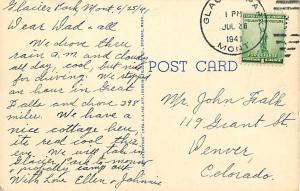 Glacier Park, Mont. 6/25/41
Dear Dad & all:
We drove thru
rain a.m. and cloudy
all day, cool, but nice
for driving. We stopped
an hour in Great
Falls and drove 398
miles. We have a
nice cottage here,
it's real cool this
eve. We will take in
Glacier Park to-morrow
& probably camp out.
With Love Ellen & Johnnie
POST CARD
GLACIER PARK
1 PM
JUL 26
194
MONT.
Mr. John Falk
119 Grant St.
Denver,
Colorado.